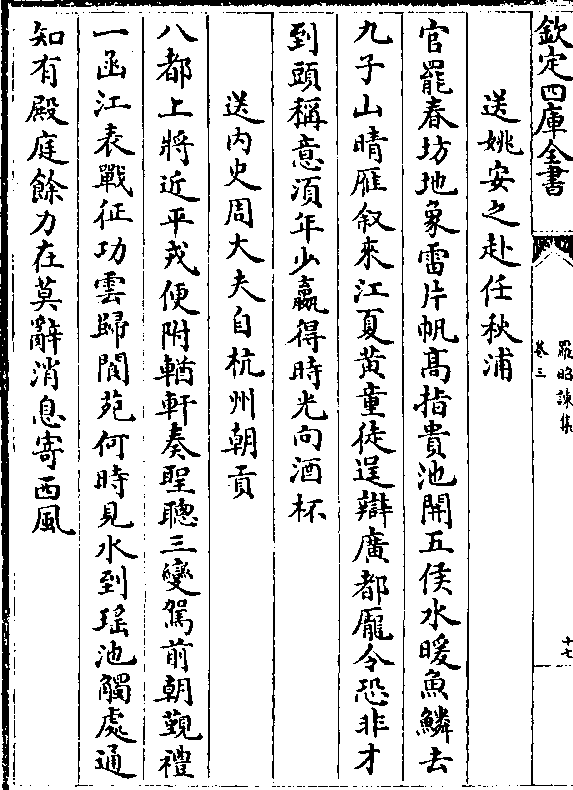 欽定四庫全書
羅昭諫集
卷三
十七
送姚安之赴任秋浦
官罷春坊地象雷片帆髙指貴池開五侯水暖魚鱗去
九子山晴雁叙來江夏黄童徒逞辯廣都龎令恐非才
到頭稱意須年少贏得時光向酒杯
送内史周大夫自杭州朝貢
八都上將近平戎便附輶軒奏聖聰三變駕前朝覲禮
一函江表戰征功雲歸閬苑何時見水到瑶池觸處通
知有殿庭餘力在莫辭消息寄西風